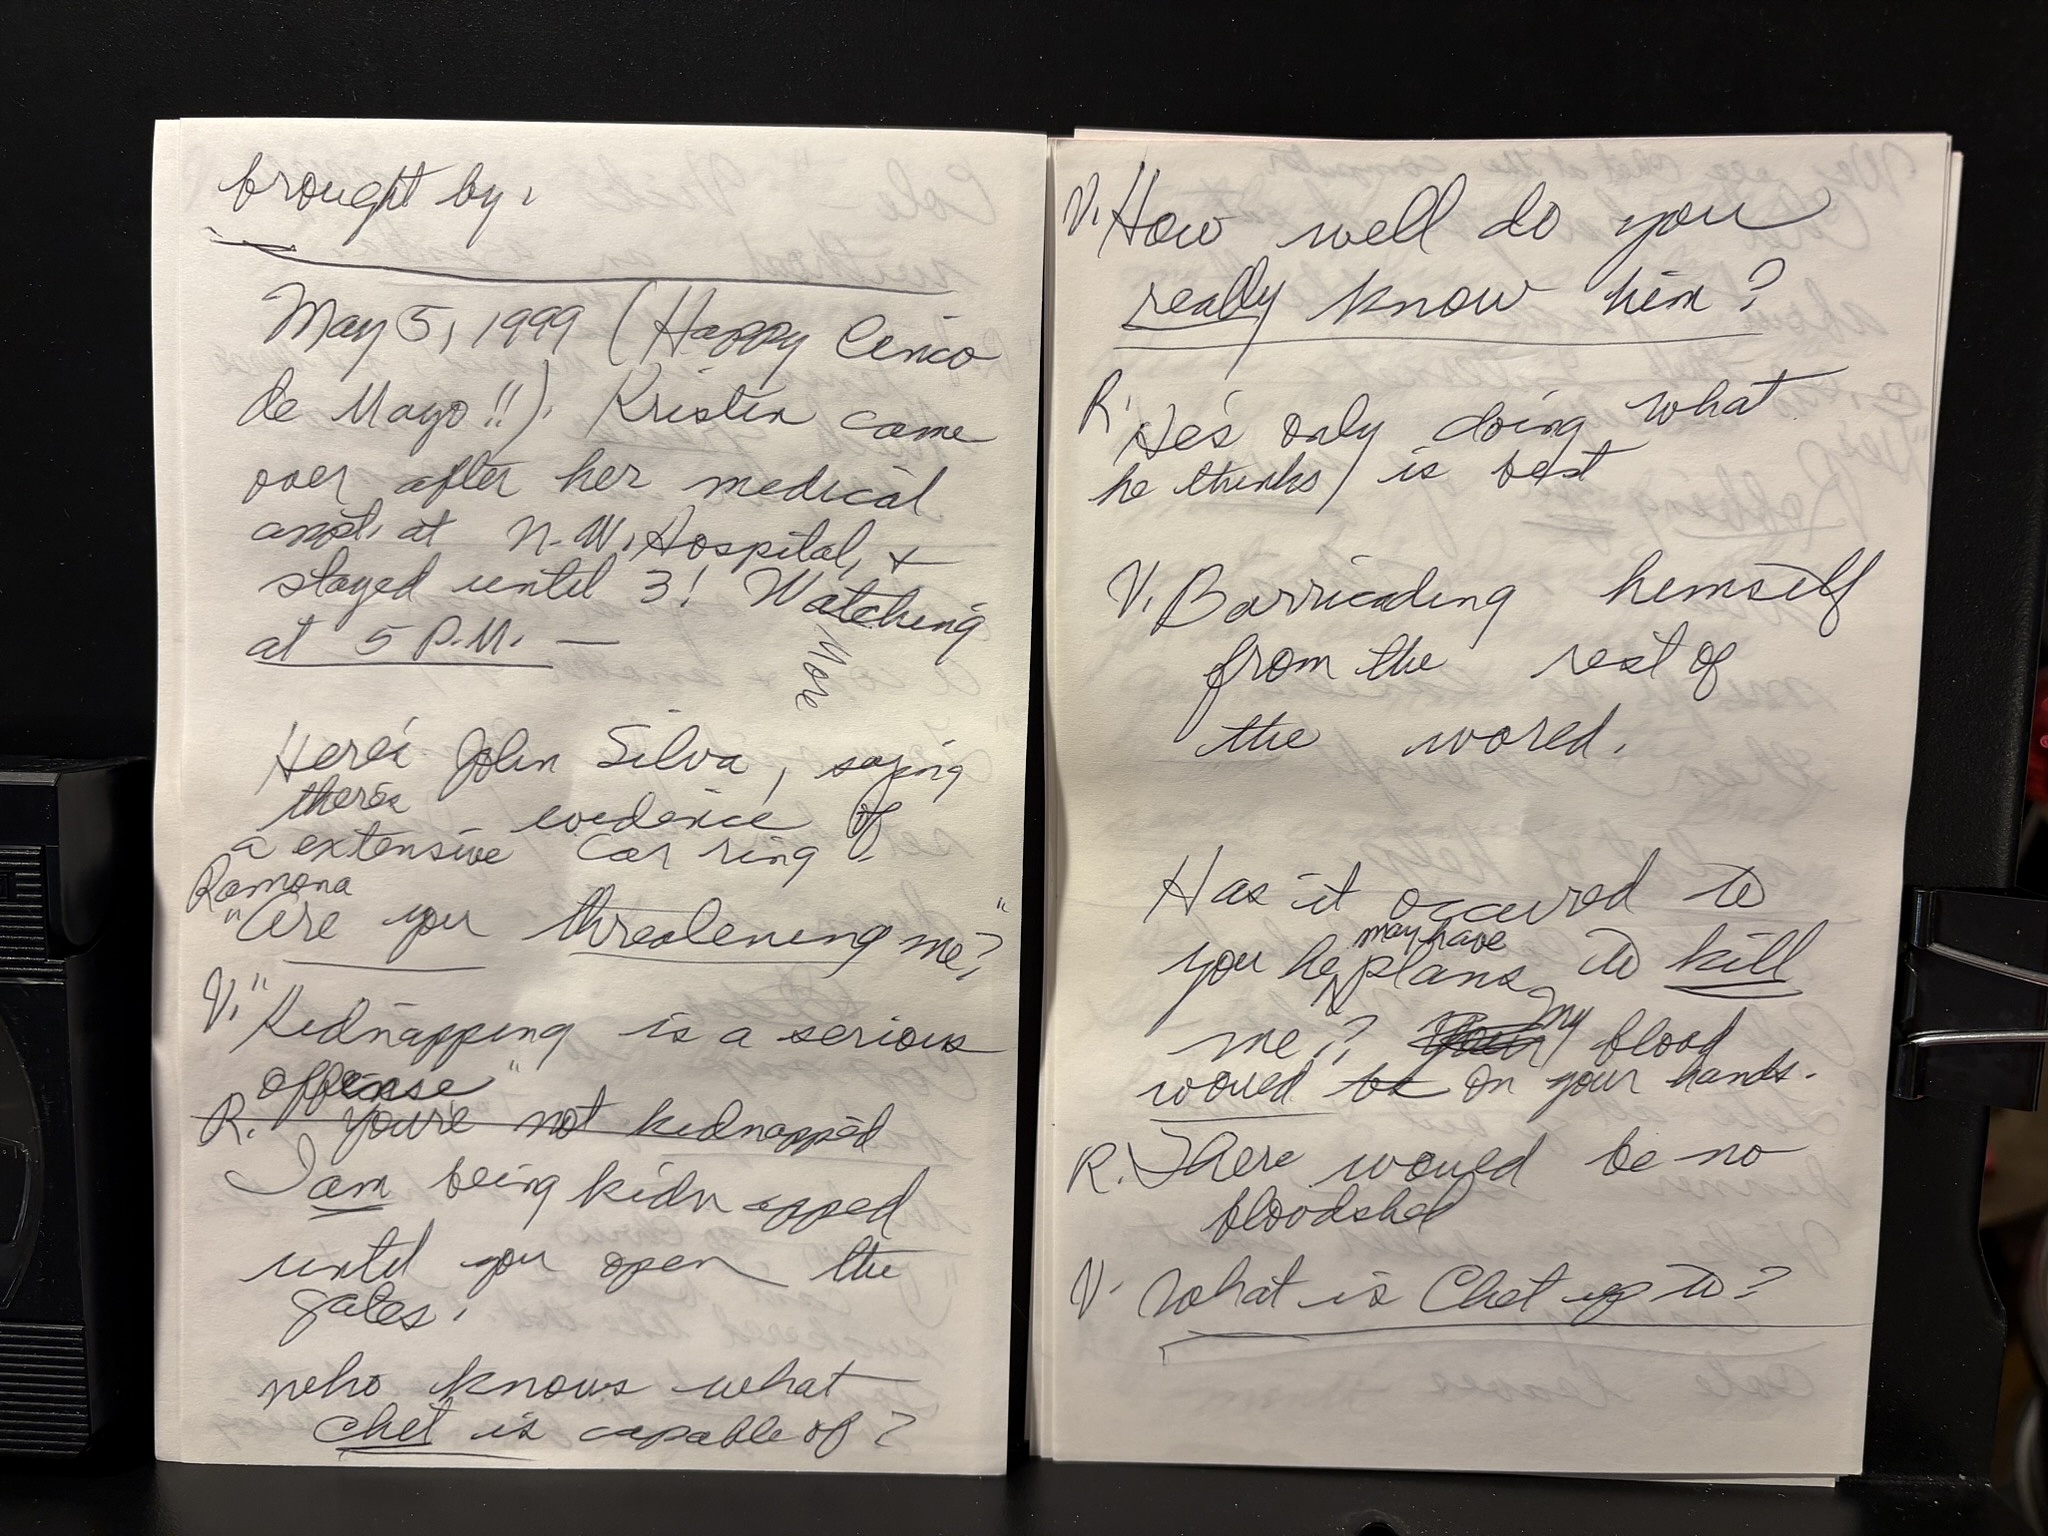 brought by,
May 5, 1999 (Happy Cinco
de Mayo!!). Kristin came
over after her medical
at N.W. Hospital, +
stayed until 3! Watching
More
at 5 P.M. —
Here's John Silva, saying
there's evidence of
a extensive car ring.
Ramona
"Are you threatening me?"
V. "Kidnapping is a serious
offense"
R. You're not kidnapped
I am being kidnapped
until you open the
gates.
who knows what
Chet is capable of?
V. How well do you
really know him?
R. He's only doing what
he thinks is best
V. Barricading himself
from the rest of
the world.
Has it occured to
you he may have plans to kill
me? your my blood
would be on your hands.
R. There would be no
bloodshed
V. What is Chet up to?